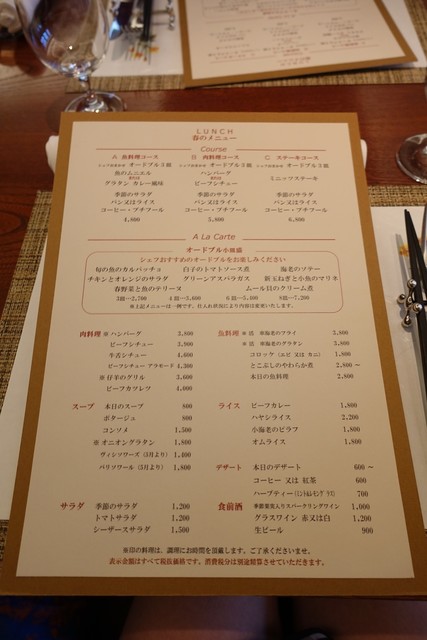 LUNCH
春のメニュー
Course
A 魚料理コース
シェフおまかせ オードブル3種
魚のムニエル
又は
グラタン カレー風味
季節のサラダ
パン又はライス
コーヒー・プチフール
4,800
B 肉料理コース
シェフおまかせ オードブル3種
ハンバーグ
又は
ビーフシチュー
季節のサラダ
パン又はライス
コーヒー・プチフール
5,800
C ステーキコース
シェフおまかせ オードブル3種
ミニッツステーキ
季節のサラダ
パン又はライス
コーヒー・プチフール
6,800
A La Carte
オードブル小皿盛
シェフおすすめのオードブルをお楽しみください
旬の魚のカルパッチョ 白子のトマトソース煮 海老のソテー
チキンとオレンジのサラダ グリーンアスパラガス 新玉ねぎと小魚のマリネ
春野菜と魚のテリーヌ ムール貝のクリーム煮
3種〜2,700 4種〜3,600 6種〜5,400 8種〜7,200
※上記メニューは一例です。仕入れ状況により内容は変更いたします。
肉料理 ※ハンバーグ 3,800
ビーフシチュー 3,900
牛舌シチュー 4,600
ビーフシチュー アラモード 4,300
※仔羊のグリル 3,600
ビーフカツレツ 4,000
魚料理 ※活 車海老のフライ 3,800
※活 車海老のグラタン 3,800
コロッケ (エビ 又は カニ) 1,800
とこぶしのやわらか煮 2,800〜
本日の魚料理 2,800
スープ 本日のスープ 800
ポタージュ 800
コンソメ 1,500
※オニオングラタン 1,800
ヴィシソワーズ (5月より) 1,400
パリソワール (5月より) 1,800
ライス ビーフカレー 1,800
ハヤシライス 2,200
小海老のピラフ 1,800
オムライス 1,800
デザート 本日のデザート 600〜
コーヒー 又は 紅茶 600
ハーブティー 700
サラダ 季節のサラダ 1,200
トマトサラダ 1,200
シーザースサラダ 1,500
食前酒 季節果実入りスパークリングワイン 1,000
グラスワイン 赤又は白 1,200
生ビール 900
※印の料理は、調理にお時間を頂戴します。ご了承くださいませ。
表示金額はすべて税抜価格です。消費税分は別途精算させていただきます。